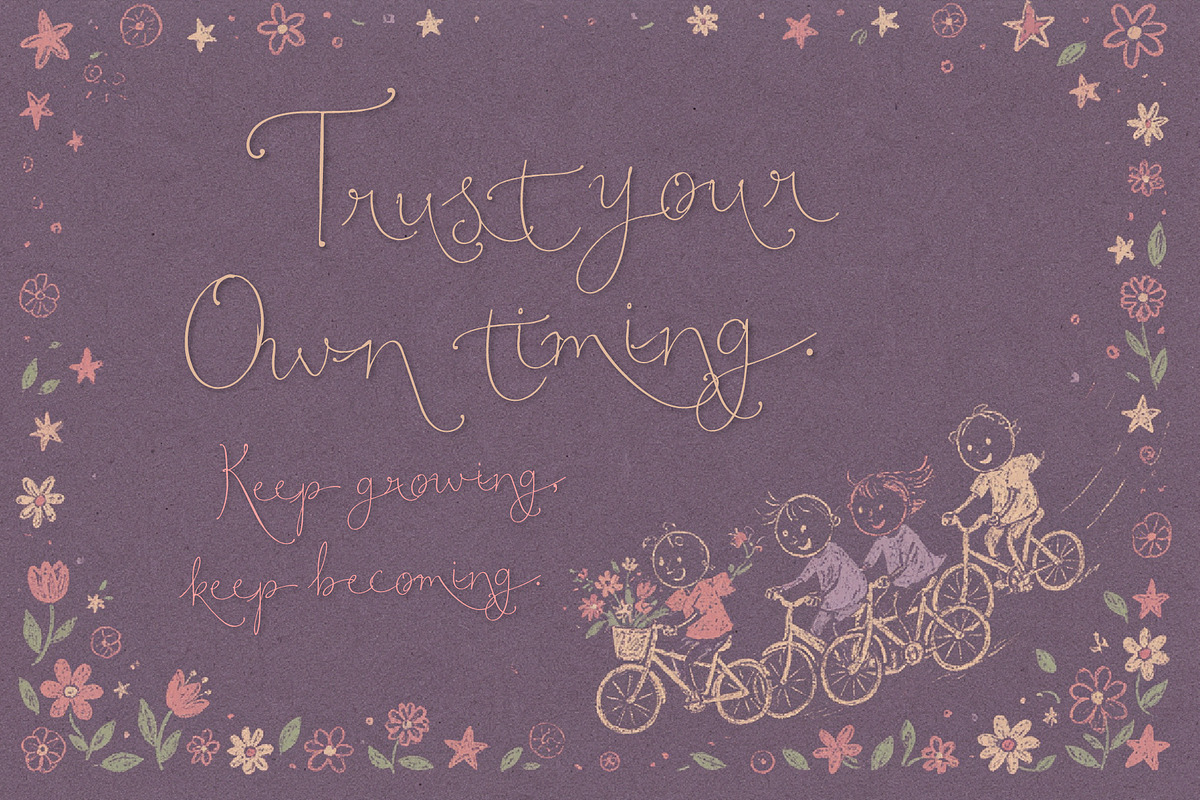 Trust your
Own timing.
Keep growing,
keep becoming.